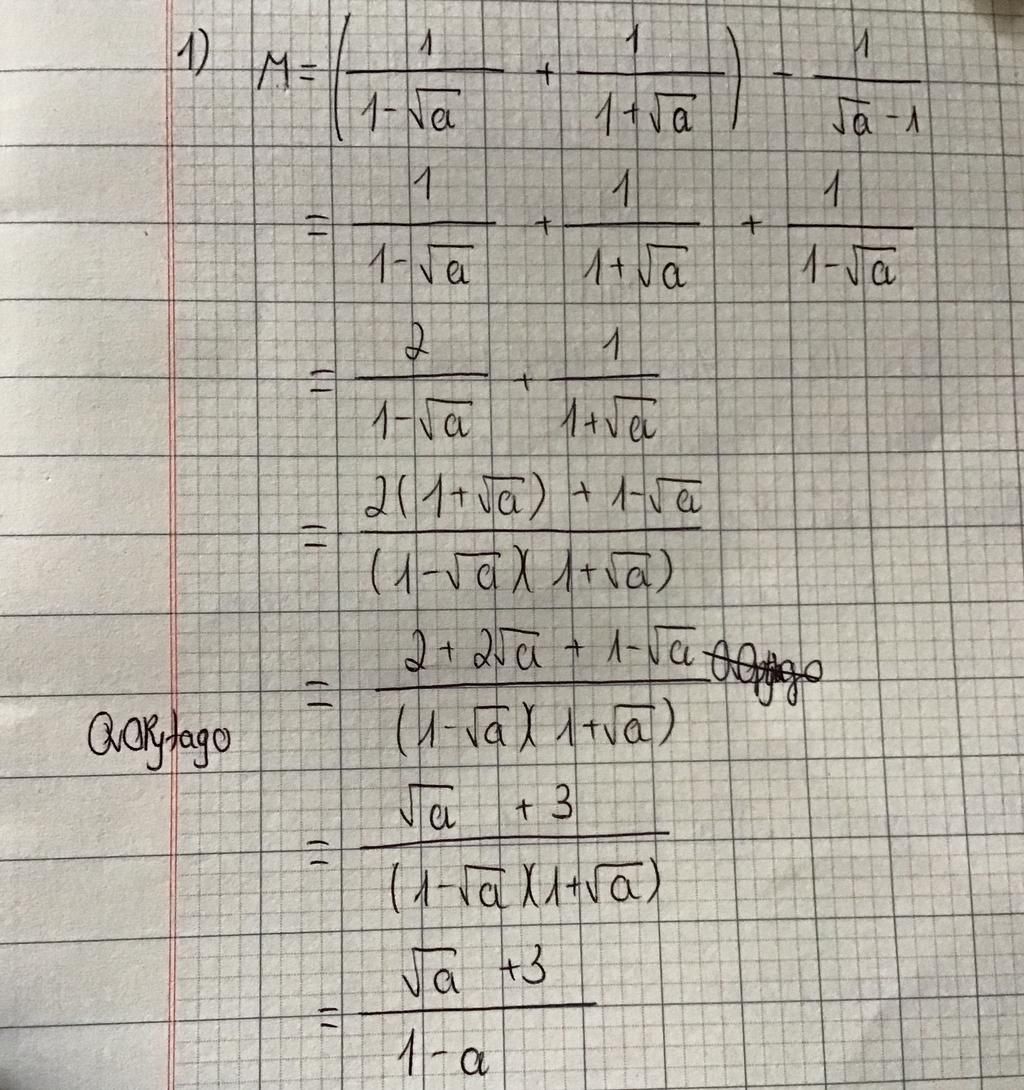 1) M = ( 1/(1-√a) + 1/(1+√a) ) - 1/(√a-1)
= 1/(1-√a) + 1/(1+√a) + 1/(1-√a)
= 2/(1-√a) + 1/(1+√a)
= (2(1+√a) + 1-√a)/((1-√a)(1+√a))
= (2 + 2√a + 1-√a)/((1-√a)(1+√a))
= (√a + 3)/((1-√a)(1+√a))
= (√a + 3)/(1-a)